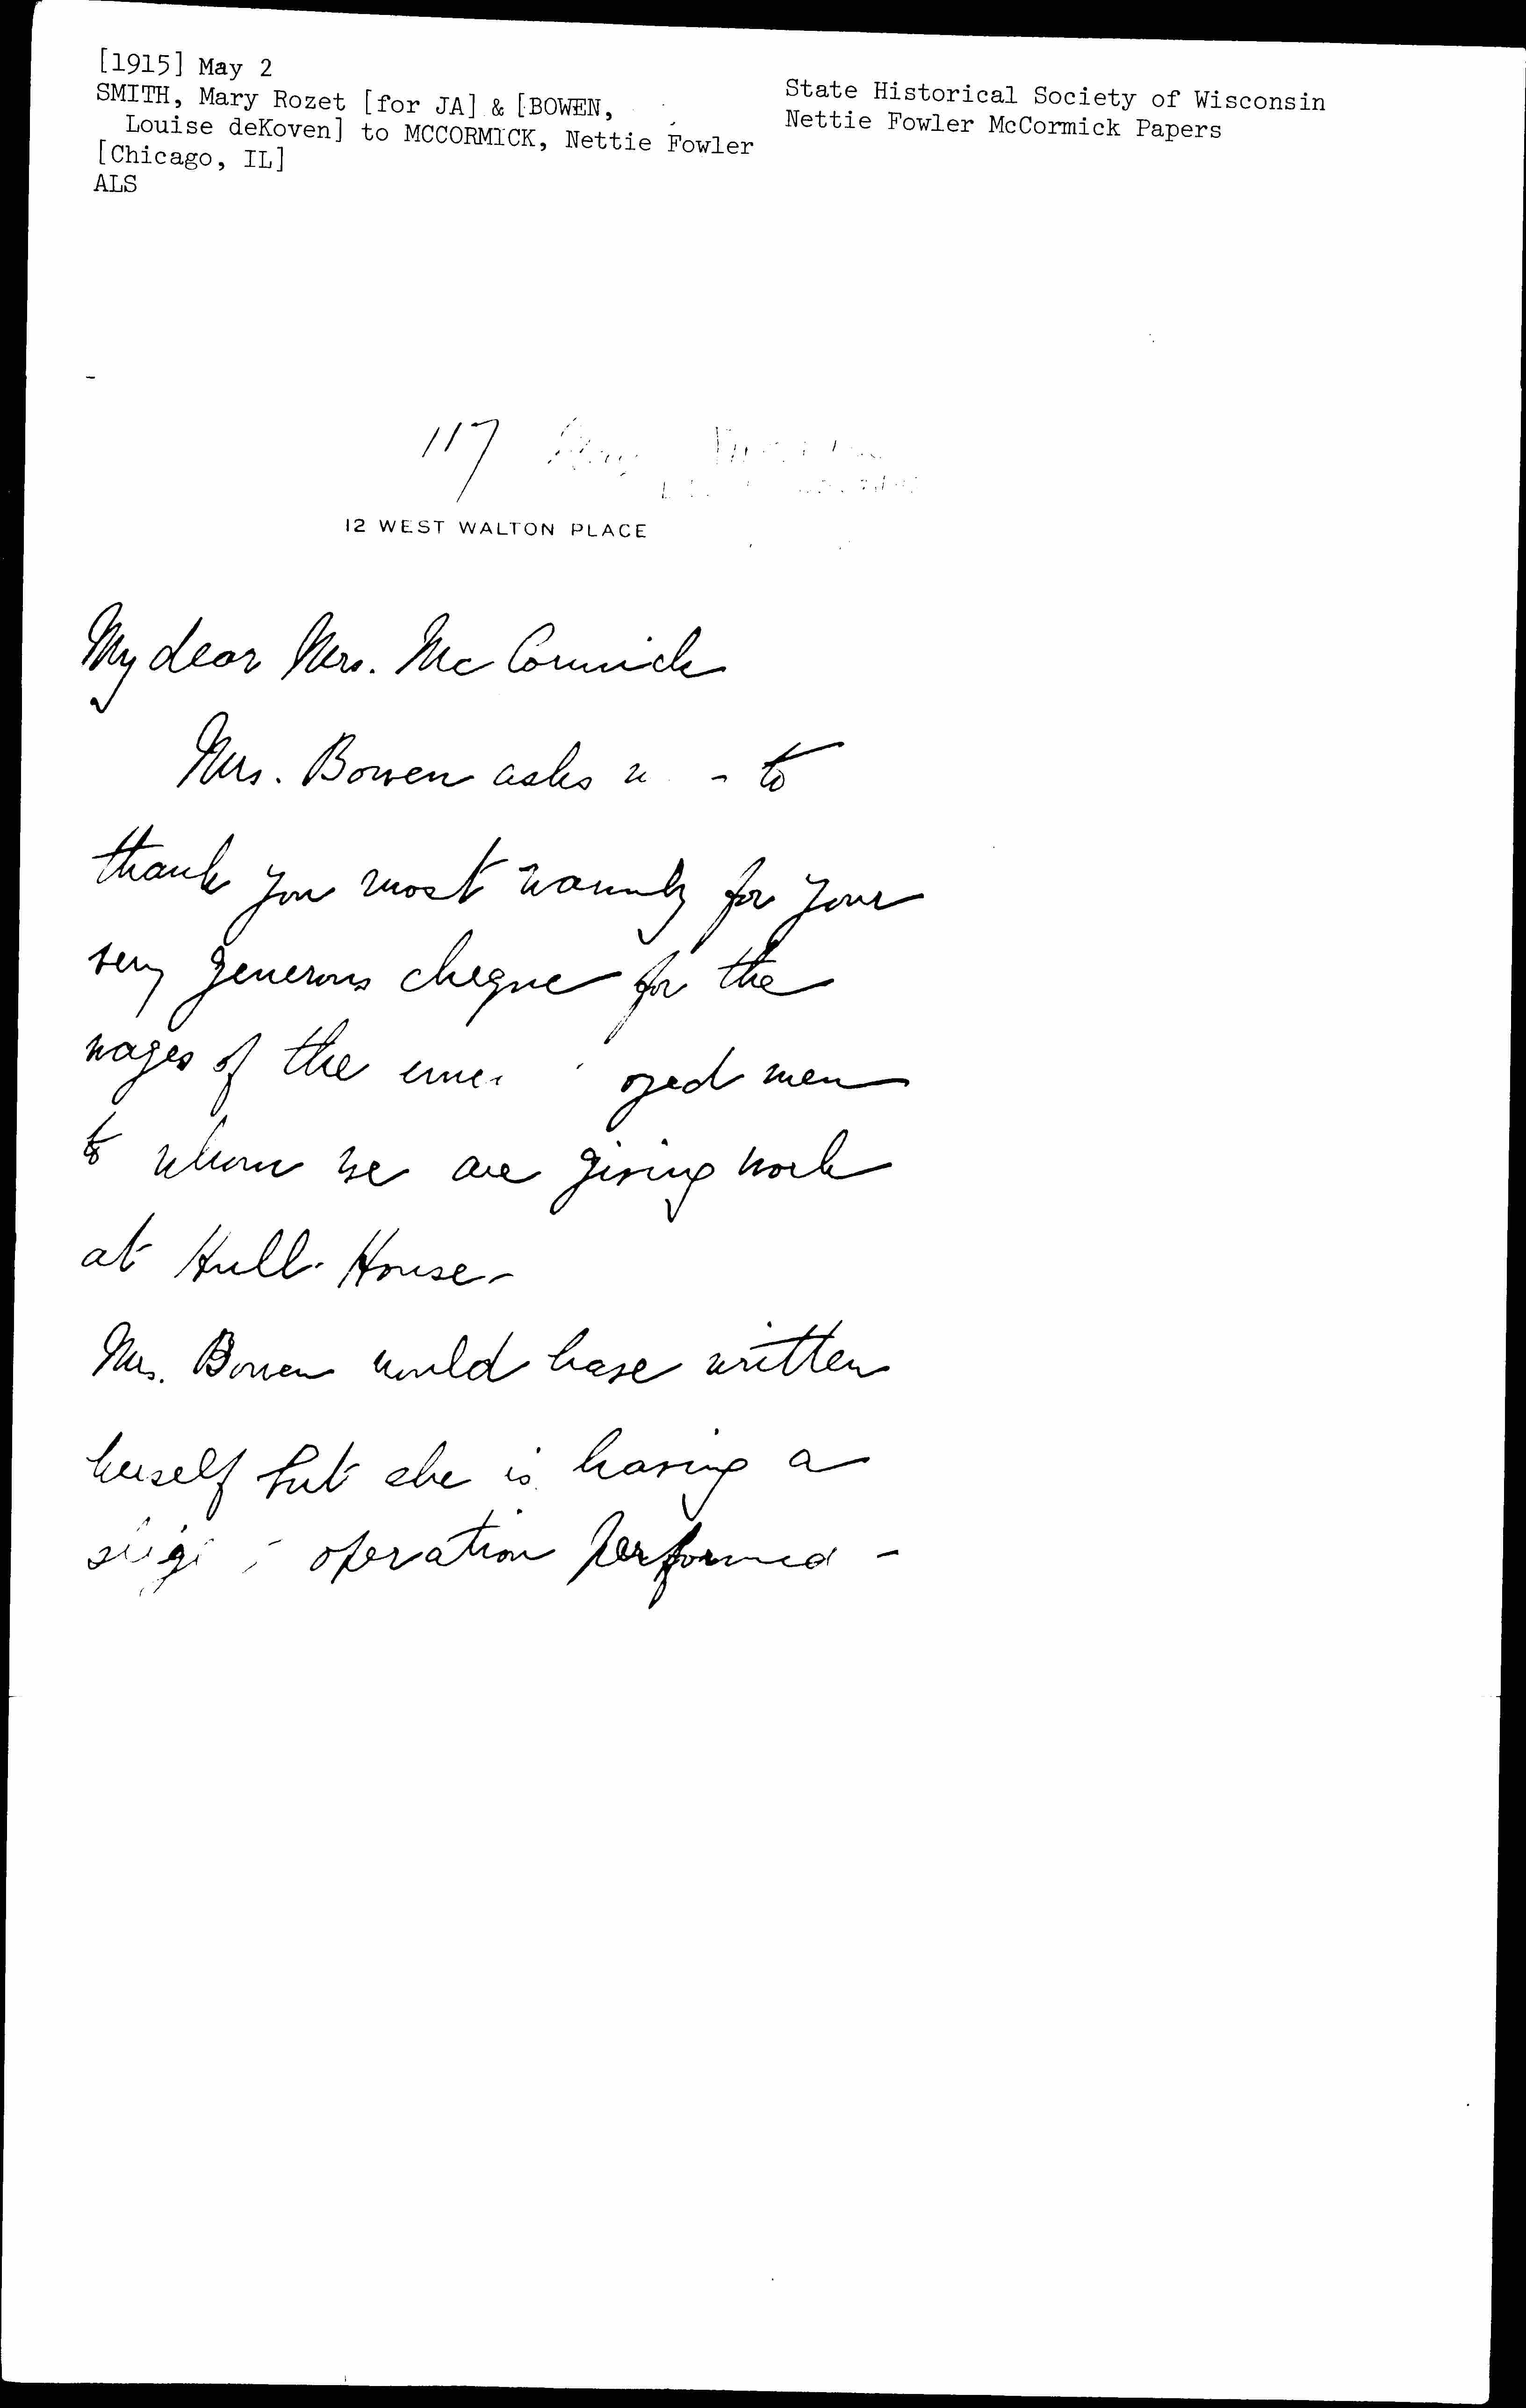 [1915] May 2
SMITH, Mary Rozet [for JA] & [BOWEN,
Louise deKoven] to MCCORMICK, Nettie Fowler
[Chicago, IL]
ALS
State Historical Society of Wisconsin
Nettie Fowler McCormick Papers
117
12 WEST WALTON PLACE
My dear Mrs. McCormick
Mrs. Bowen asks - to
thank you most warmly for your
very generous cheque for the
wages of the men
to whom we are giving work
at Hull-House-
Mrs. Bowen would have written
herself but she is having a
operation performed -